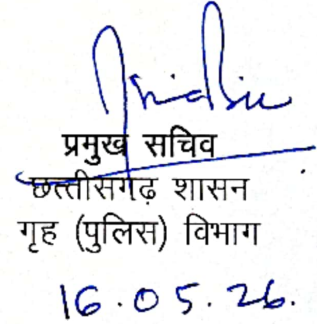 प्रमुख सचिव
छत्तीसगढ़ शासन
गृह (पुलिस) विभाग
16.05.26.